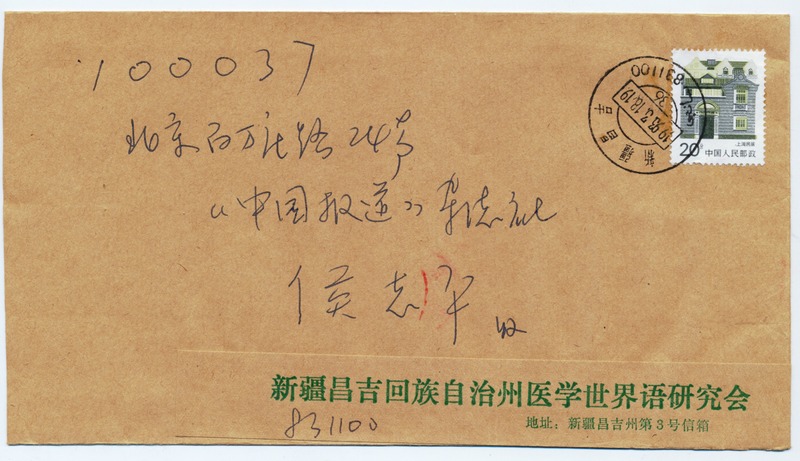 100037
北京百万庄路24号
《中国报道》杂志社
侯志平 收
上海民居
20分 中国人民邮政
831100
新疆
昌吉
新疆昌吉回族自治州医学世界语研究会
831100
地址：新疆昌吉州第3号信箱